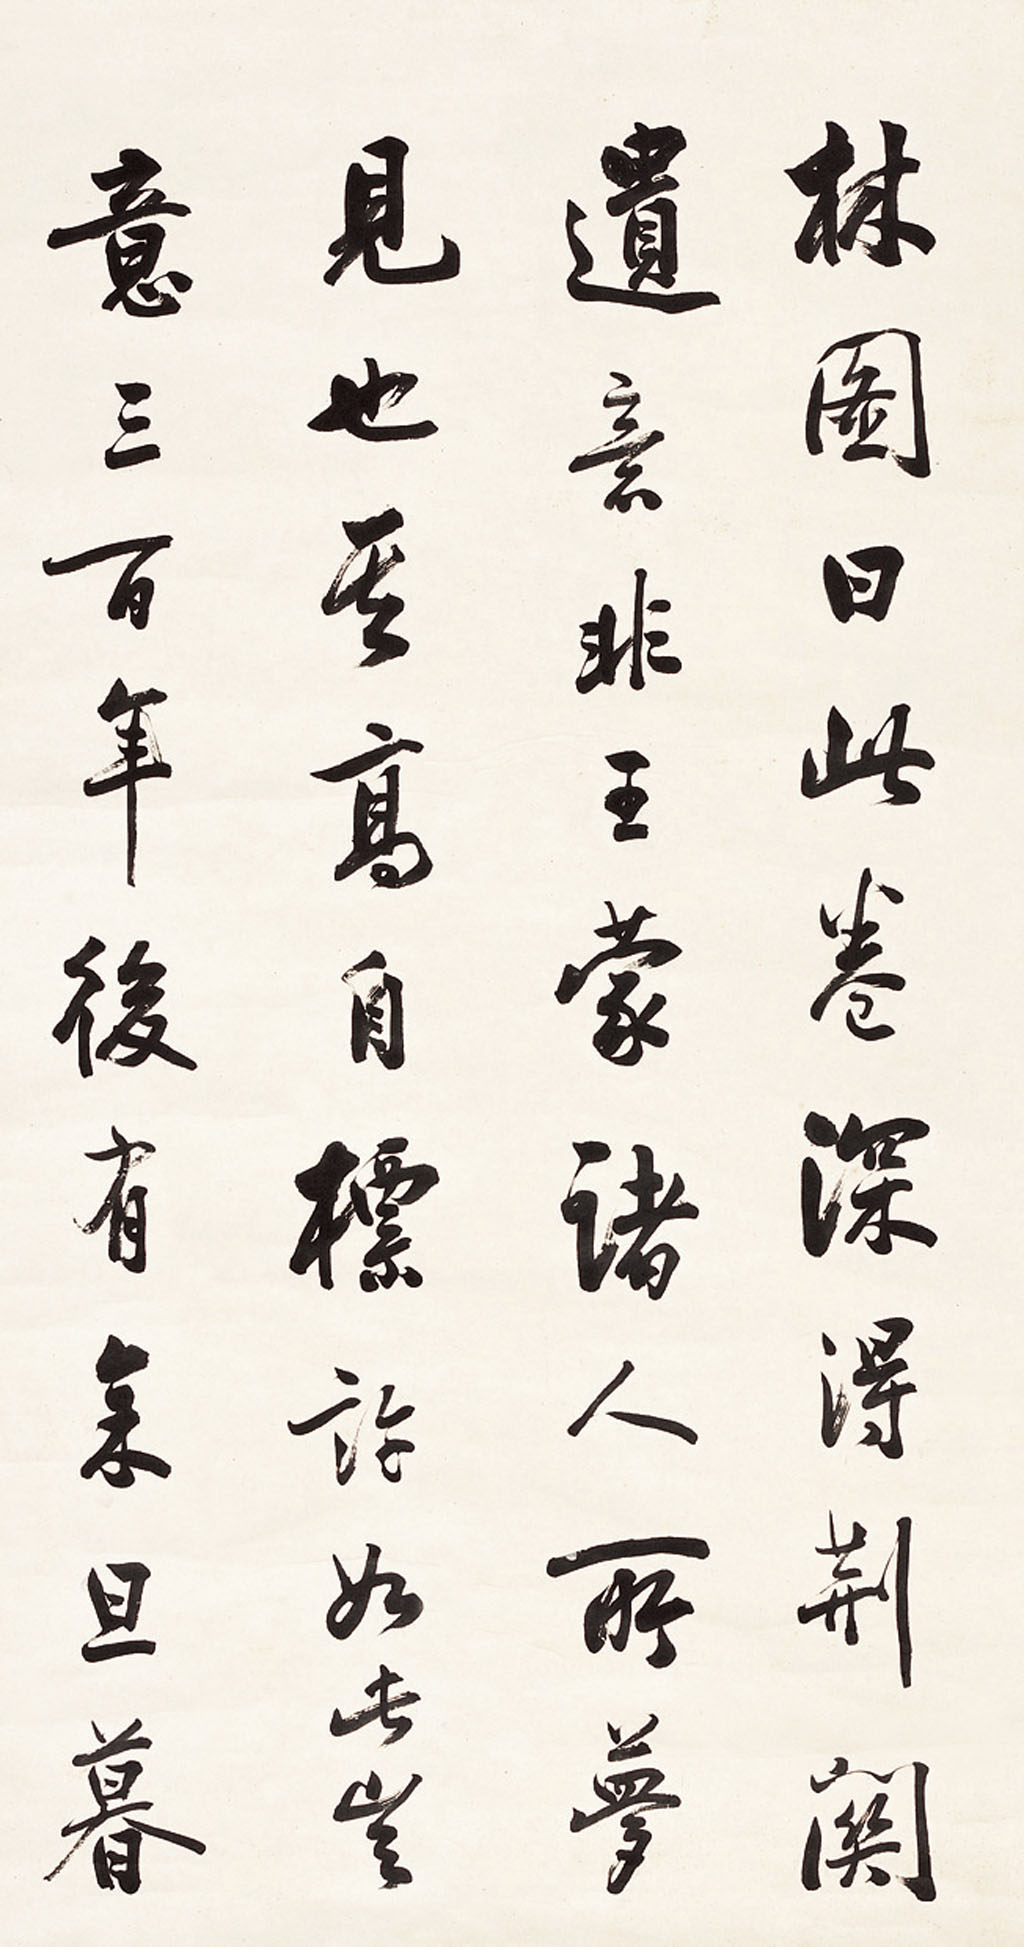 林圖曰此卷深得荆關
遺意非王蒙諸人所夢
見也其高自標許如此豈
意三百年後有余旦暮